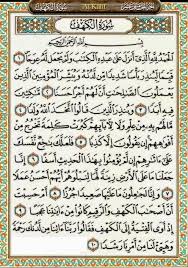 سُورَةُ الْكَهْفِ
Al-Kahf
سُورَةُ الْكَهْفِ
بِسْمِ اللَّهِ الرَّحْمَٰنِ الرَّحِيمِ
الْحَمْدُ لِلَّهِ الَّذِي أَنْزَلَ عَلَىٰ عَبْدِهِ الْكِتَٰبَ وَلَمْ يَجْعَلْ لَهُ عِوَجًا ١
قَيِّمًا لِيُنْذِرَ بَأْسًا شَدِيدًا مِنْ لَدُنْهُ وَيُبَشِّرَ الْمُؤْمِنِينَ الَّذِينَ
يَعْمَلُونَ الصَّٰلِحَٰتِ أَنَّ لَهُمْ أَجْرًا حَسَنًا ٢ مَٰكِثِينَ
فِيهِ أَبَدًا ٣ وَيُنْذِرَ الَّذِينَ قَالُوا اتَّخَذَ اللَّهُ وَلَدًا ٤
مَا لَهُمْ بِهِ مِنْ عِلْمٍ وَلَا لِآبَائِهِمْ كَبُرَتْ كَلِمَةً تَخْرُجُ مِنْ
أَفْوَٰهِهِمْ إِنْ يَقُولُونَ إِلَّا كَذِبًا ٥ فَلَعَلَّكَ بَٰخِعٌ نَفْسَكَ
عَلَىٰ ءَاثَٰرِهِمْ إِنْ لَمْ يُؤْمِنُوا بِهَٰذَا الْحَدِيثِ أَسَفًا ٦
إِنَّا جَعَلْنَا مَا عَلَى الْأَرْضِ زِينَةً لَهَا لِنَبْلُوَهُمْ أَيُّهُمْ أَحْسَنُ عَمَلًا ٧
وَإِنَّا لَجَٰعِلُونَ مَا عَلَيْهَا صَعِيدًا جُرُزًا ٨ أَمْ حَسِبْتَ
أَنَّ أَصْحَٰبَ الْكَهْفِ وَالرَّقِيمِ كَانُوا مِنْ ءَايَٰتِنَا عَجَبًا ٩
إِذْ أَوَى الْفِتْيَةُ إِلَى الْكَهْفِ فَقَالُوا رَبَّنَا ءَاتِنَا مِنْ لَدُنْكَ رَحْمَةً
وَهَيِّئْ لَنَا مِنْ أَمْرِنَا رَشَدًا ١٠